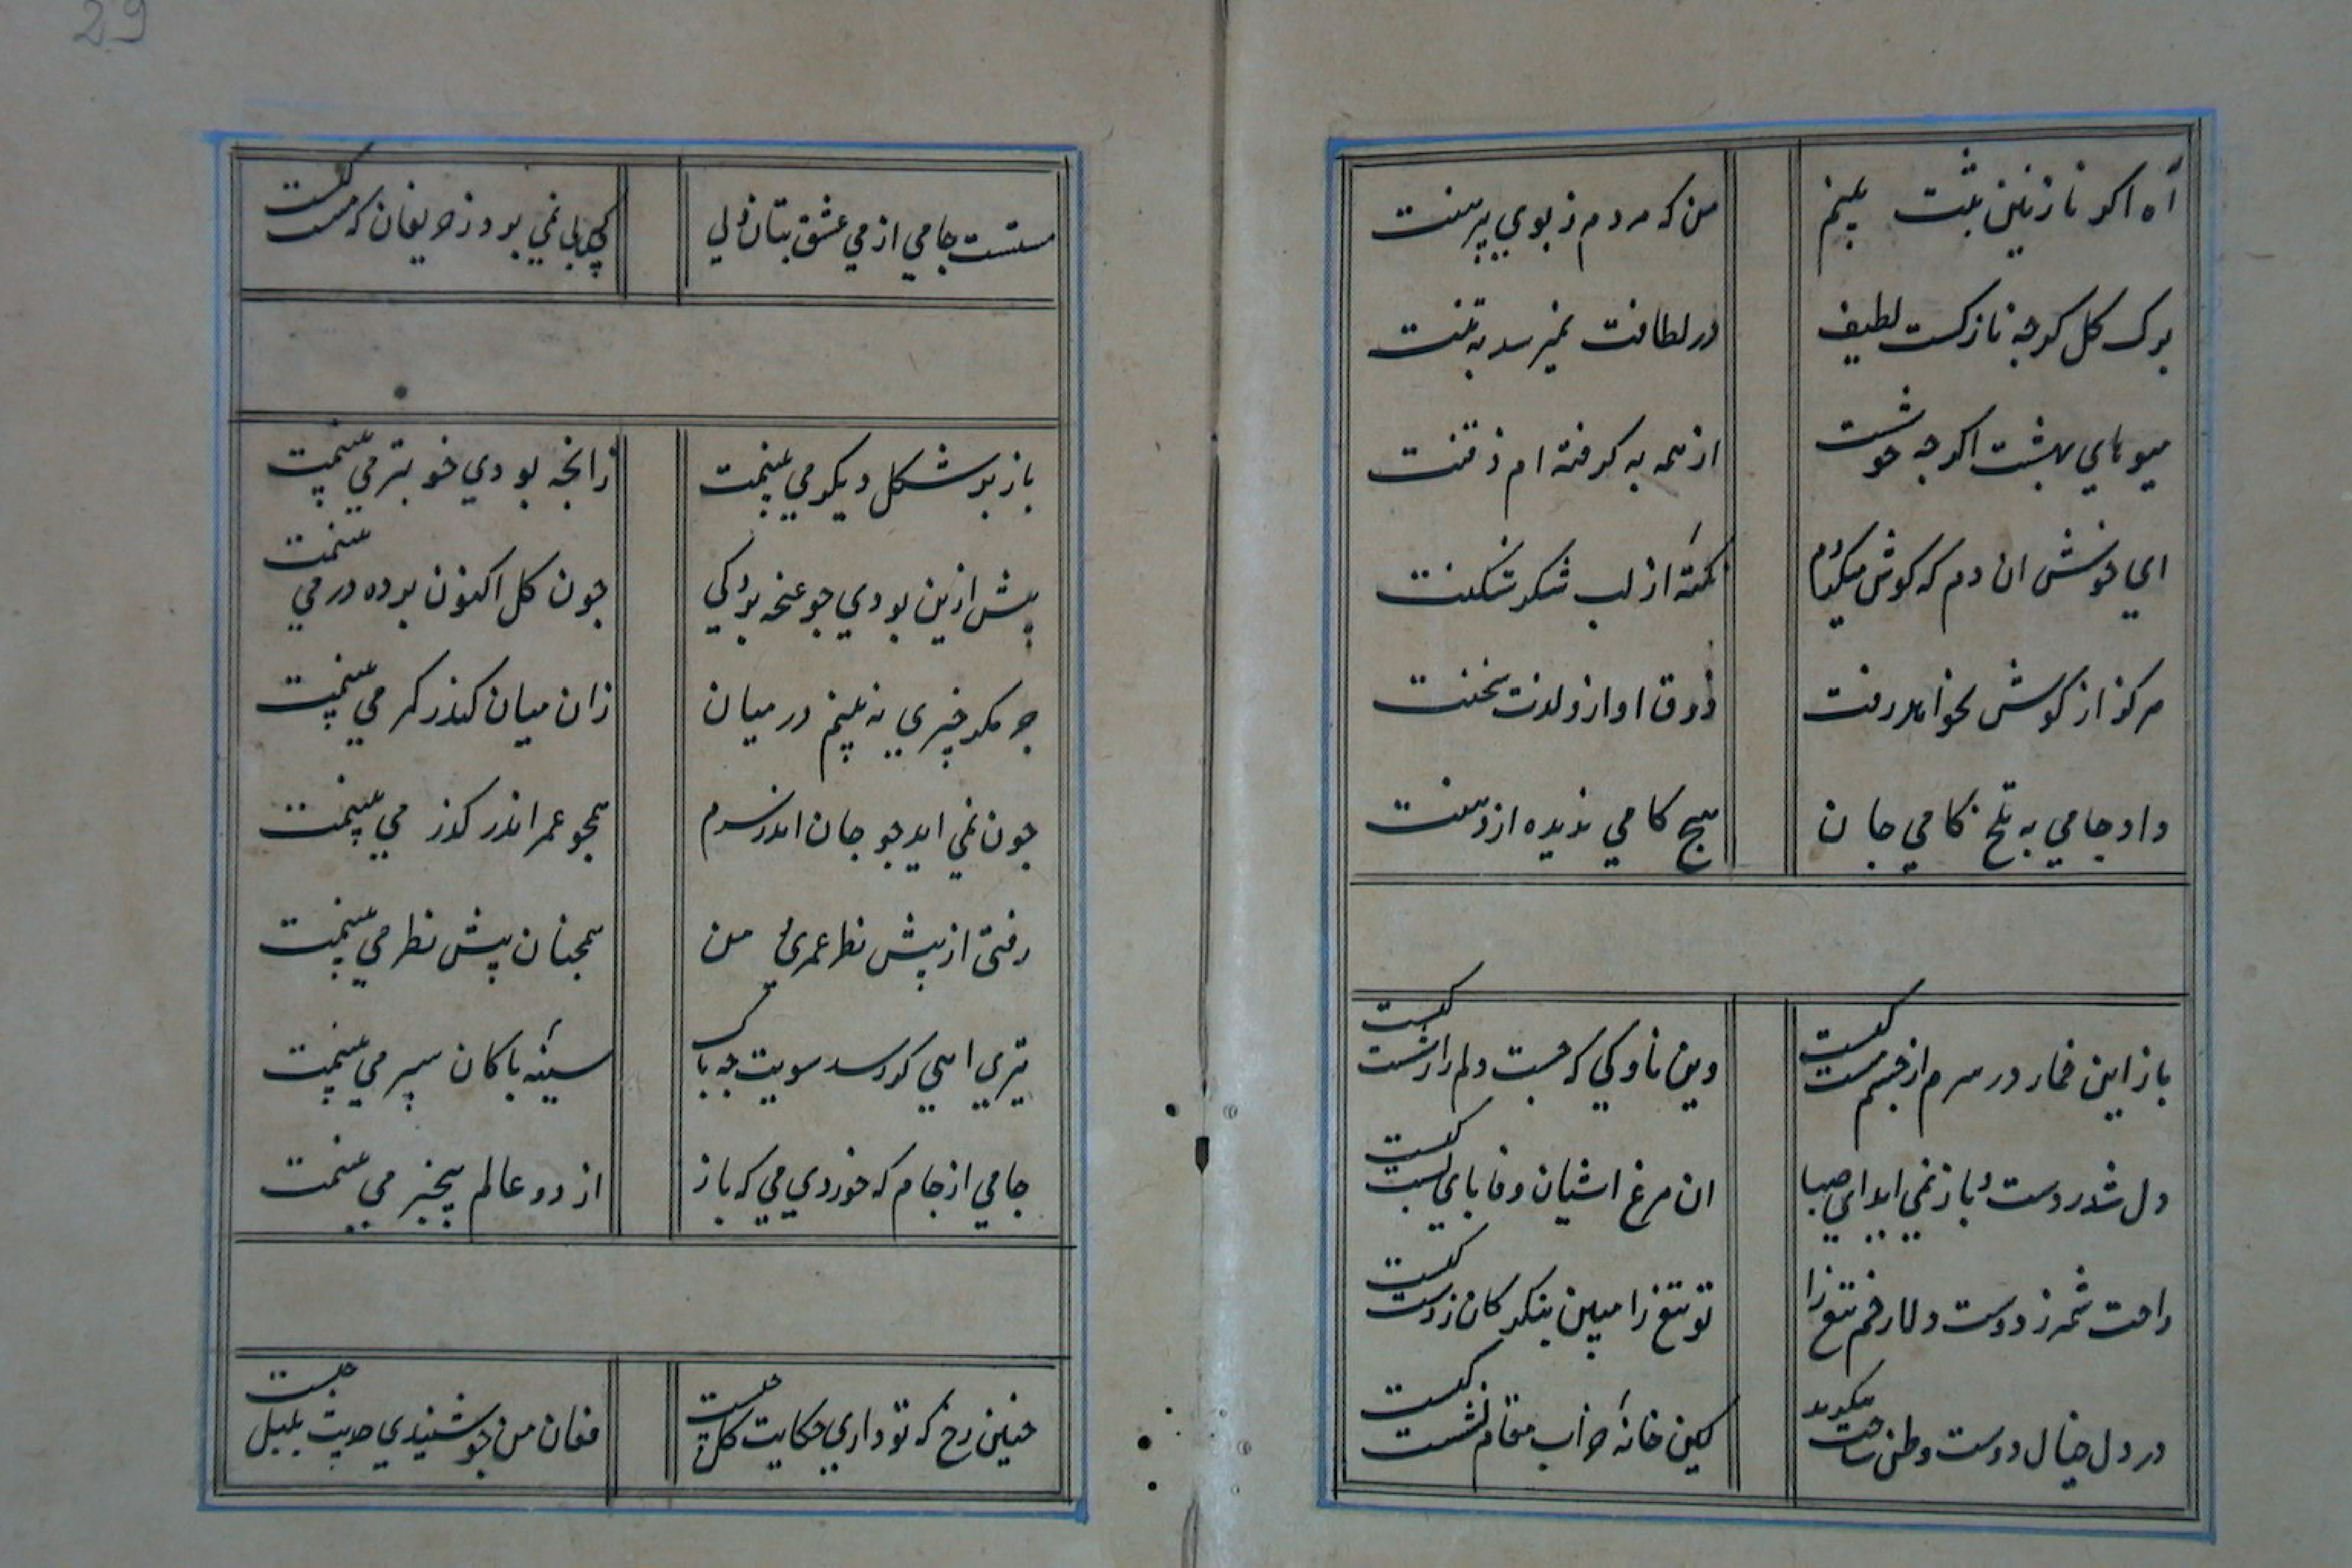 29
آه اکر نازنین تنت بینم من که مردم ز بوی پیرهنت
برک کل کرچه نازکست لطیف در لطافت نمیرسد به تنت
میوهای بهشت اکرچه خوشست از همه به کرفته ام ذقنت
ای خوش ان دم که کوش میکردم نکتهٔ از لب شکر شکنت
هرکز از کوش نخواهد رفت ذوق اواز و لذت سخنت
داد جامی به تلخ کامی جان هیچ کامی ندیده از دهنت
باز این خمار در سرم از چشم مست کیست وین ناوکی که جست دلم را ز شست کیست
دل شد ز دست و باز نمی اید ای صبا ان مرغ اشیان وفا پای بست کیست
راحت شمر ز دوست دلا زخم تیغ را تو تیغ را مبین بنکر کان ز دست کیست
در دل خیال دوست وطن ساخت میکوید کین خانهٔ خراب مقام نشست کیست
مستست جامی از می عشق بتان ولی کس پی نمی بود ز حریفان که مست کیست
باز بر شکل دیکر می بینمت زانچه بودی خوبتر می بینمت
پیش ازین بودی چو غنچه پردکی چون کل اکنون پرده در می بینمت
جز مکر چیزی نه بینم در میان زان میان کنذر کمر می بینمت
چون نمی اید چو جان اندر سرم همچو عمر اندر کذر می بینمت
رفتی از پیش نظر عمری و من همچنان پیش نظر می بینمت
تیری اهی کر رسد سویت چه باک سینهٔ پاکان سپر می بینمت
جامی از جام که خوردی می که باز از دو عالم بیخبر می بینمت
چنین رخ که تو داری حکایت کل چیست فغان من چو شنیدی حدیث بلبل چیست